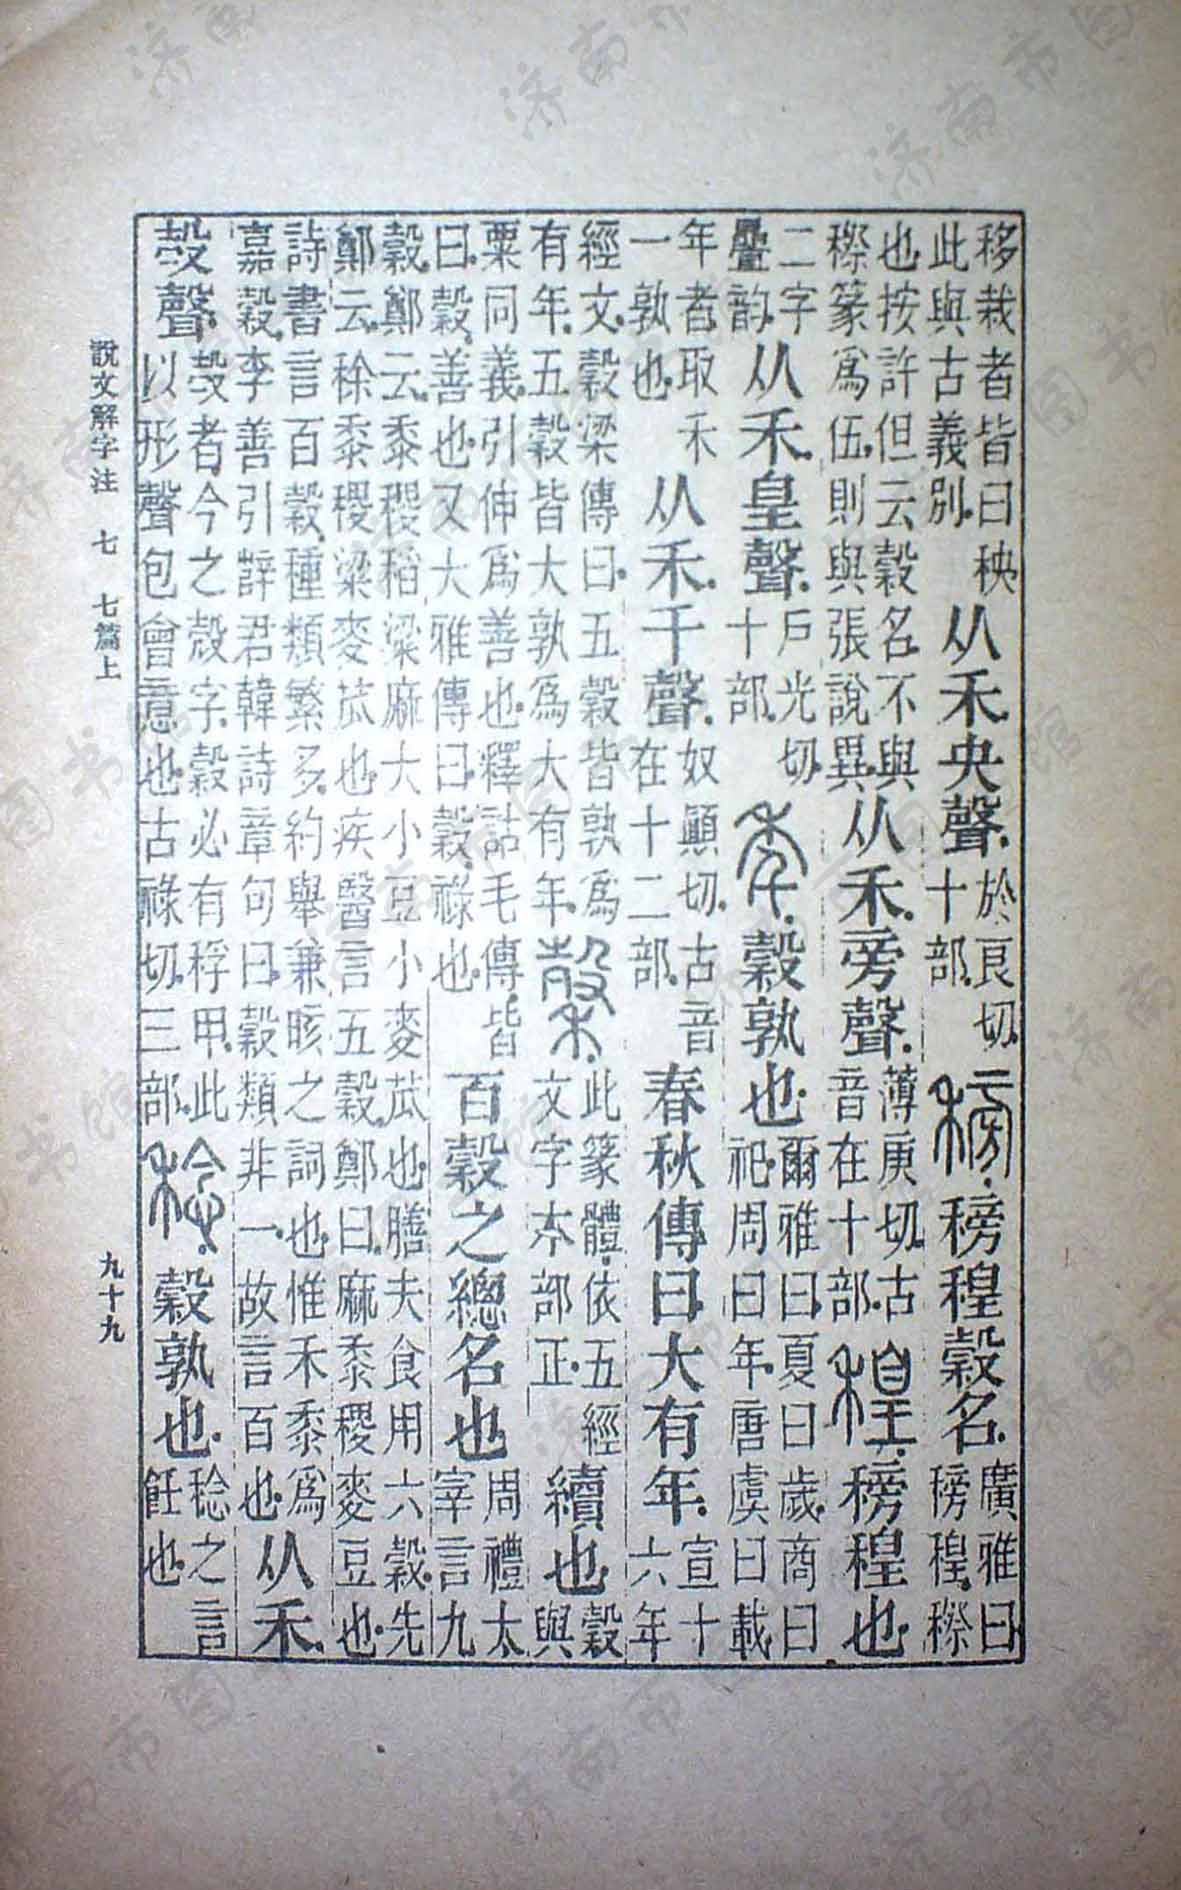 移栽者皆曰秧此與古義別.从禾央聲.於良切.十部.䅭.䅭䅣穀名.廣雅曰䅭䅣.穄
也.按許但云穀名.不與穄篆爲伍.則與張說異.从禾.旁聲.薄庚切.古音在十部.䅣.䅭䅣也.
二字疊韵.从禾.皇聲.戶光切.十部.秊.穀孰也.爾雅曰.夏曰歲.商曰祀.周曰年.唐虞曰載
年者.取禾一孰也.从禾.千聲.奴顚切.古音在十二部.春秋傳曰.大有年.宣十六年
經文.穀梁傳曰.五穀皆孰爲有年.五穀皆大孰爲大有年.穀.此篆體.依五經文字木部正.續也.穀與
粟同義.引伸爲善也.釋詁毛傳皆曰.穀善也.又大雅傳曰.穀.祿也.百穀之總名也.周禮太宰言九
穀.鄭云.黍稷稻粱麻大小豆小麥苽也.膳夫食用六穀.先鄭云.稌黍稷粱麥苽也.疾醫言五穀.鄭曰.麻黍稷麥豆也.
詩書言百穀.種類繁多.約舉兼晐之詞也.惟禾黍爲嘉穀.李善引薛君韓詩章句曰.穀類非一.故言百也.从禾.
㱿聲.㱿者今之殼字.穀必有稃甲.此以形聲包會意也.古祿切.三部.稔.穀孰也.稔之言飪也.
說文解字注 七 七篇上
九十九